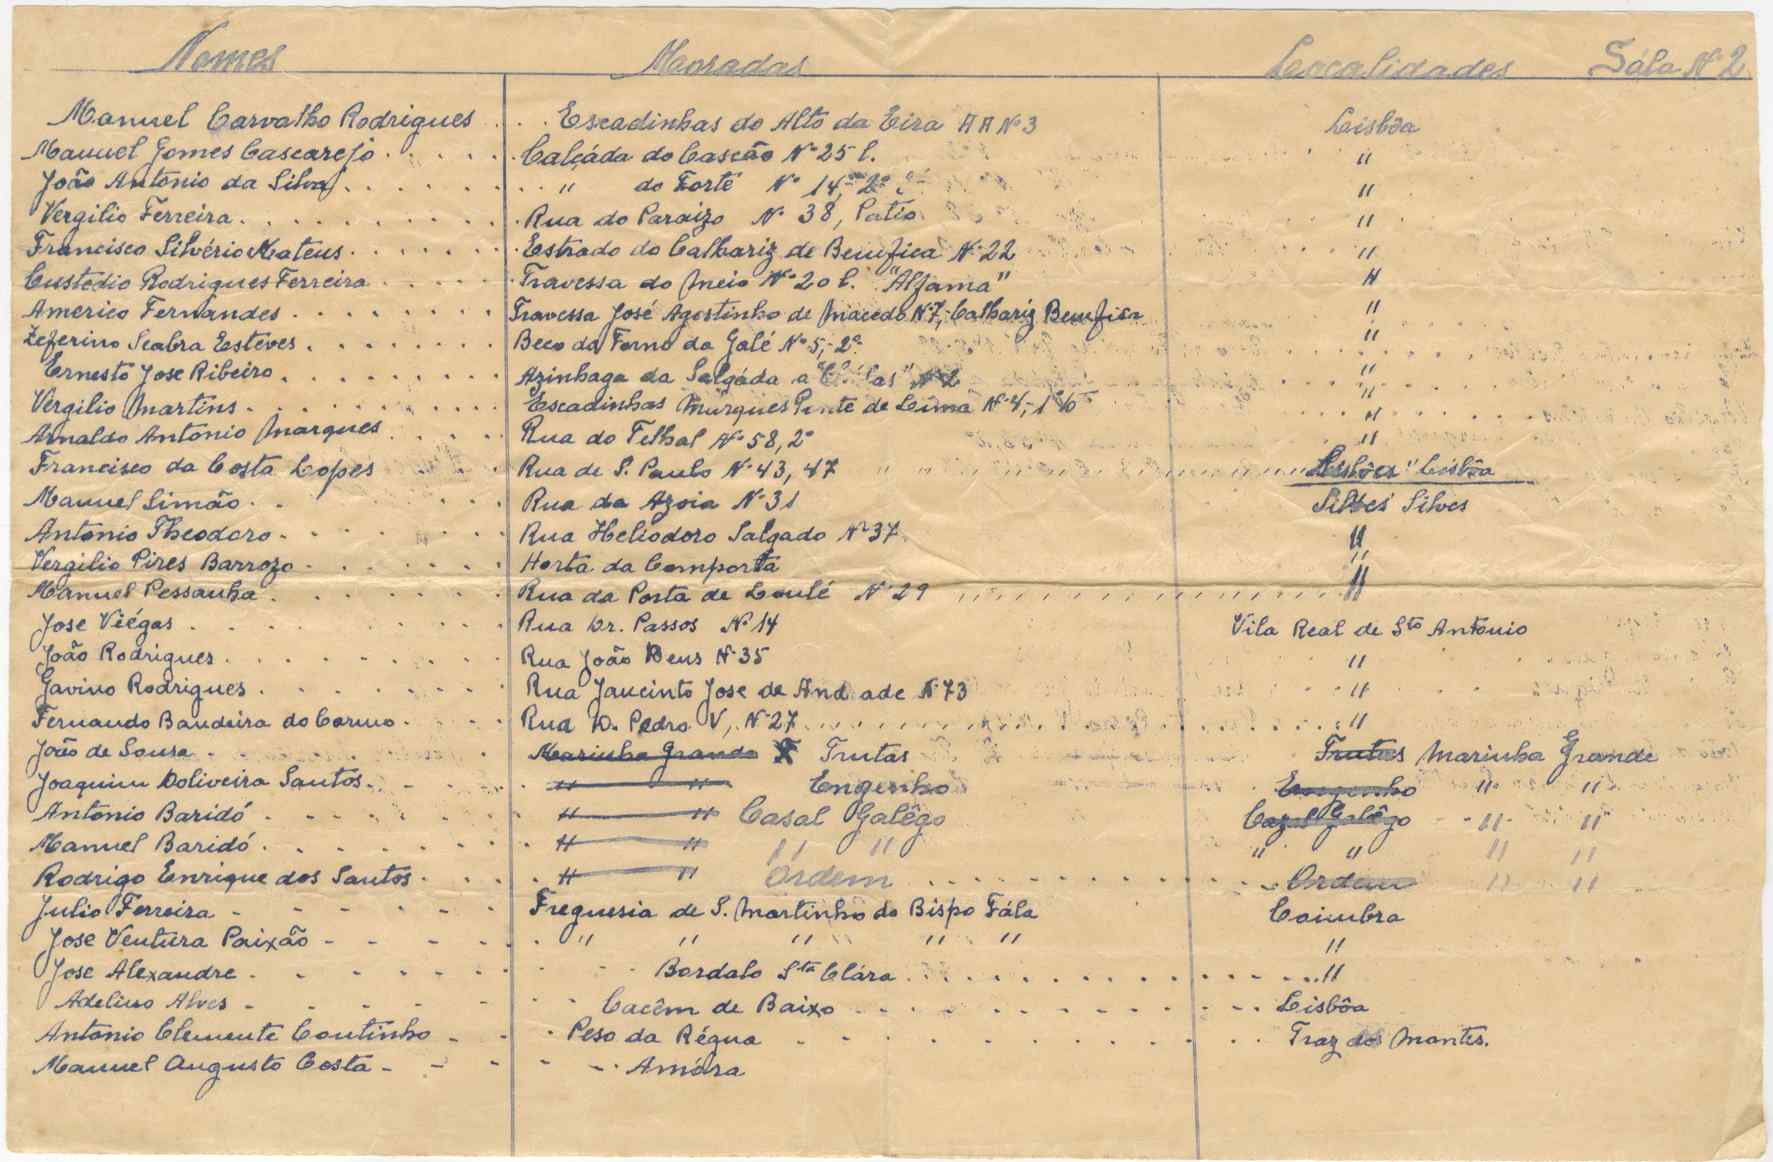 Nomes Moradas Localidades Sála Nº 2
Manuel Carvalho Rodrigues . . . Escadinhas do Alto da Eira A A Nº 3 Lisbôa
Manuel Gomes Cascarejo . . . . . Calçáda do Cascão Nº 25 l. "
João Antonio da Silva . . . . . . " do Forte Nº 14, 2º "
Vergilio Ferreira . . . . . . . . Rua do Paraizo Nº 38, Patio "
Francisco Silvério Mateus . . . . . . Estrada do Calhariz de Benfica Nº 22 "
Custódio Rodrigues Ferreira . . . . . Travessa do Meio Nº 20 l. "Alfama" "
Americo Fernandes . . . . . . . . Travessa José Agostinho de Macedo Nº 7, Calhariz Benfica "
Zeferino Seabra Esteves . . . . . . . Beco do Forno da Galé Nº 5, 2º "
Ernesto Jose Ribeiro . . . . . . . . Azinhaga da Salgáda a "
Vergilio Martins . . . . . . . . . Escadinhas Marques Ponte de Lima Nº 4, 1º "
Arnaldo Antonio Marques . . . . Rua do Telhal Nº 58, 2º "
Francisco da Costa Lopes . . . Rua de S. Paulo Nº 43, 47 " " Lisbôa " Lisbôa
Manuel Simão . . Rua da Azoia Nº 31 Silves Silves
Antonio Theodoro . . . . . . . Rua Heliodoro Salgado Nº 37 "
Vergilio Pires Barrozo . . . . . . Horta da Comporta "
Manuel Pessanha . . . . . . . Rua da Porta de Loulé Nº 29 "
Jose Viégas . . . . . . . Rua Dr. Passos Nº 14 Vila Real de Sto Antonio
João Rodrigues . . . . . . . . Rua João Deus Nº 35 "
Gavino Rodrigues . . . . . . . Rua Jaucinto Jose de Andrade Nº 73 "
Fernando Bandeira do Carmo . . . . Rua D. Pedro V, Nº 27 . . . . . . . "
João de Sousa . . . . . . . Marinha Grande Trutas Trutas Marinha Grande
Joaquim Doliveira Santos . . . . " " Engenho Engenho " "
Antonio Baridó . . . . . . . " " Casal Galêgo Cazal Galêgo " "
Manuel Baridó . . . . . . . " " " " " " " "
Rodrigo Enrique dos Santos . . . . " " Ordem . . . . . . . Ordem " "
Julio Ferreira - - - - - - Freguesia de S. Martinho do Bispo Fála Coimbra
Jose Ventura Paixão - - - - . " " " " " "
Jose Alexandre . - - - - - - - Bordalo Sta Clára . . . . . . . . . "
Adelino Alves - - - - - - Cacêm de Baixo . . . . . . . Lisbôa
Antonio Clemente Coutinho - - . Peso da Régua - - - - - - - Traz dos Montes.
Manuel Augusto Costa - - - - -. Amóra